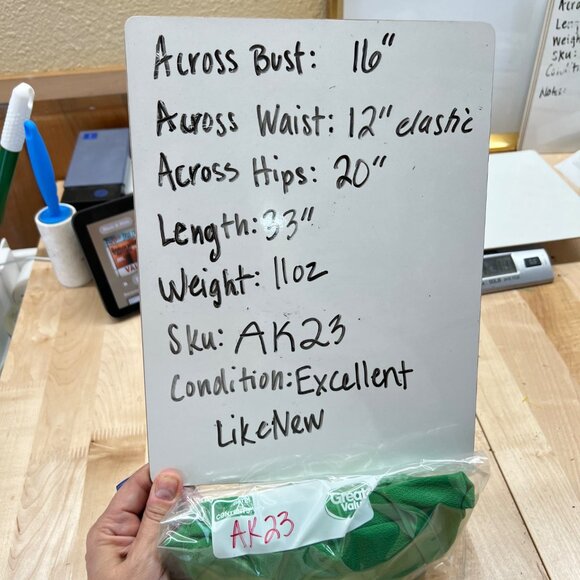 Across Bust: 16"
Across Waist: 12" elastic
Across Hips: 20"
Length: 33"
Weight: 11oz
Sku: AK23
Condition: Excellent
Like New
Great Value
AK23